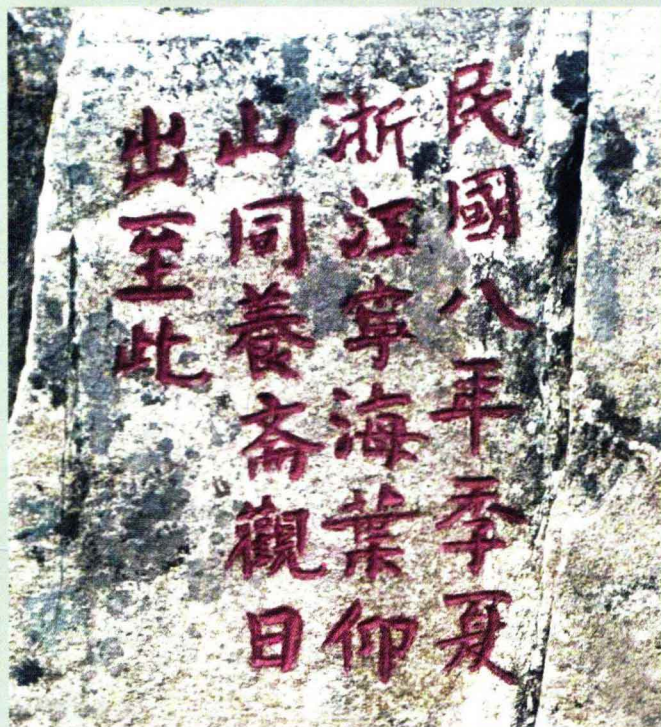 民國八年季夏
浙江寧海葉仰
山同養斋觀日
出至此